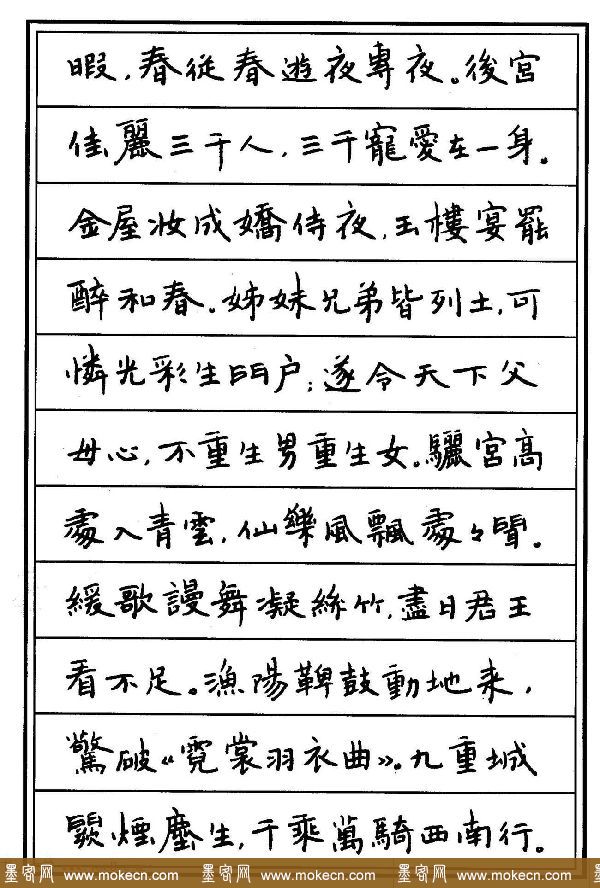 暇，春従春遊夜專夜。後宮
佳麗三千人，三千寵愛在一身。
金屋妝成嬌侍夜，玉樓宴罷
醉和春。姊妹兄弟皆列土，可
憐光彩生門户；遂令天下父
母心，不重生男重生女。驪宮高
處入青雲，仙樂風飄處々聞。
緩歌謾舞凝絲竹，盡日君王
看不足。漁陽鞞鼓動地来，
驚破《霓裳羽衣曲》。九重城
闕煙塵生，千乘萬騎西南行。
墨客网 www.mokecn.com 墨客网 www.mokecn.com 墨客网 www.mokecn.com 墨客网